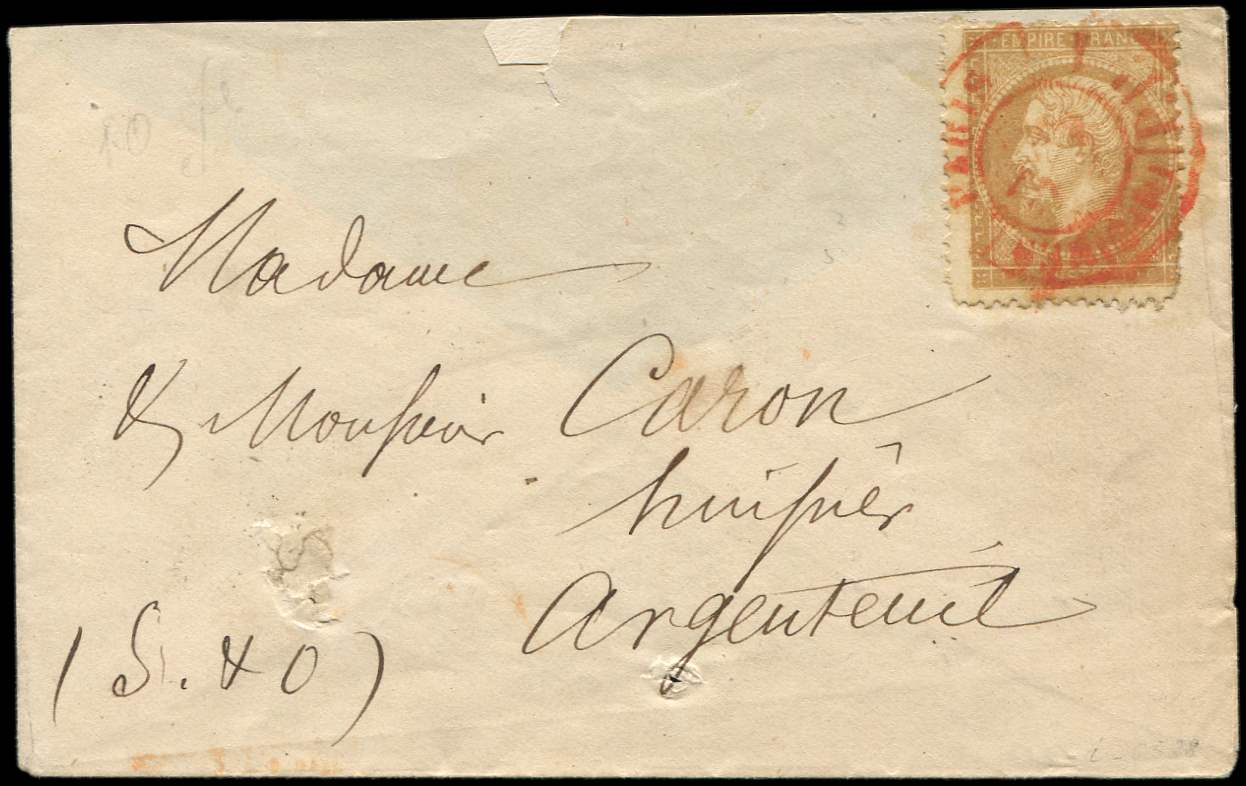 EMPIRE FRANC
PARIS
Madame
& Monsieur Caron
huissier
Argenteuil
(S. & O)